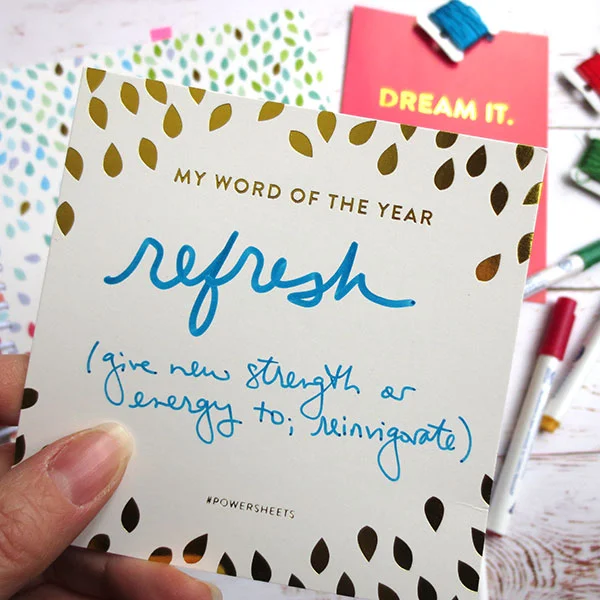 DREAM IT.
MY WORD OF THE YEAR
refresh
(give new strength or
energy to; reinvigorate)
#POWERSHEETS